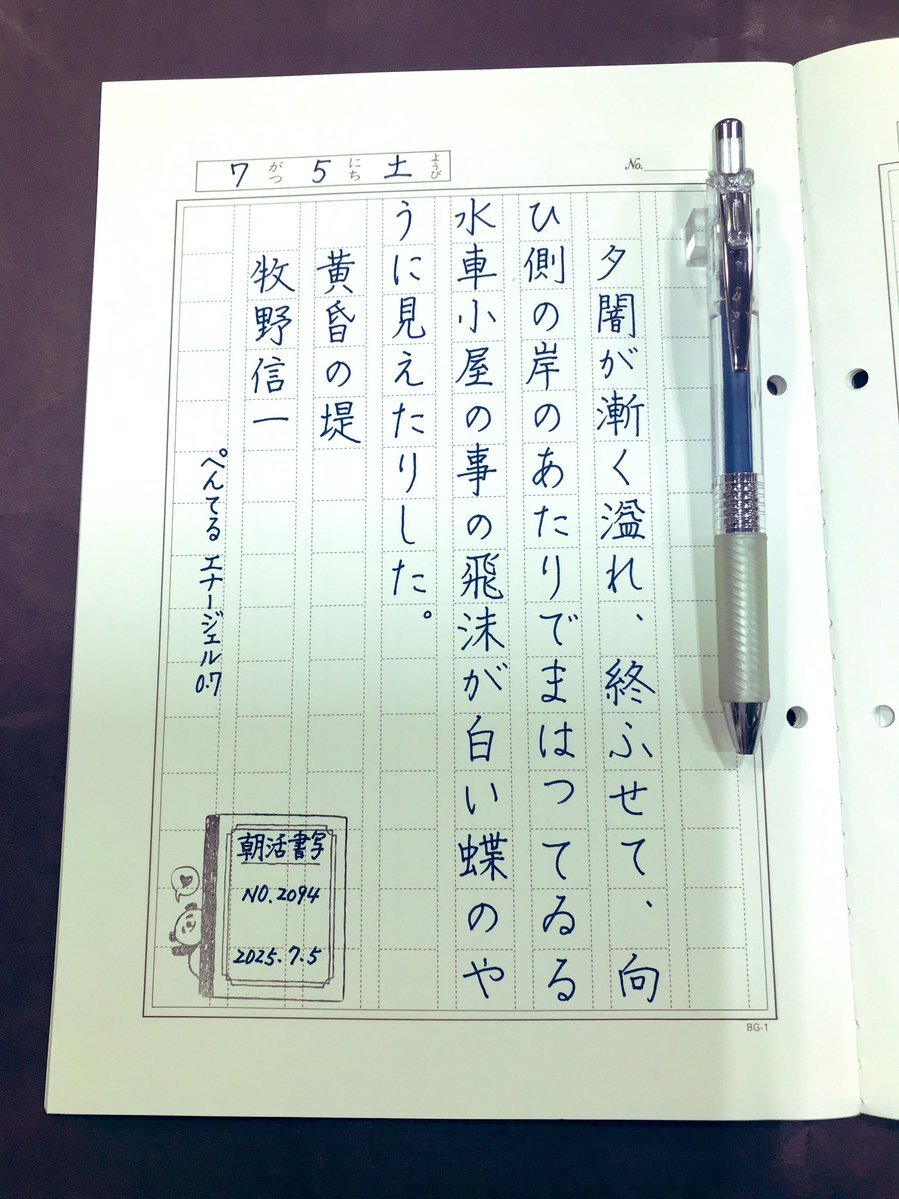 7 がつ 5 にち 土 ようび
No.
夕闇が漸く溢れ、終ふせて、向
ひ側の岸のあたりでまはつてゐる
水車小屋の事の飛沫が白い蝶のや
うに見えたりした。
黄昏の堤
牧野信一
ぺんてる エナージェル 0.7
朝活書写
NO.2094
2025.7.5
BG-1